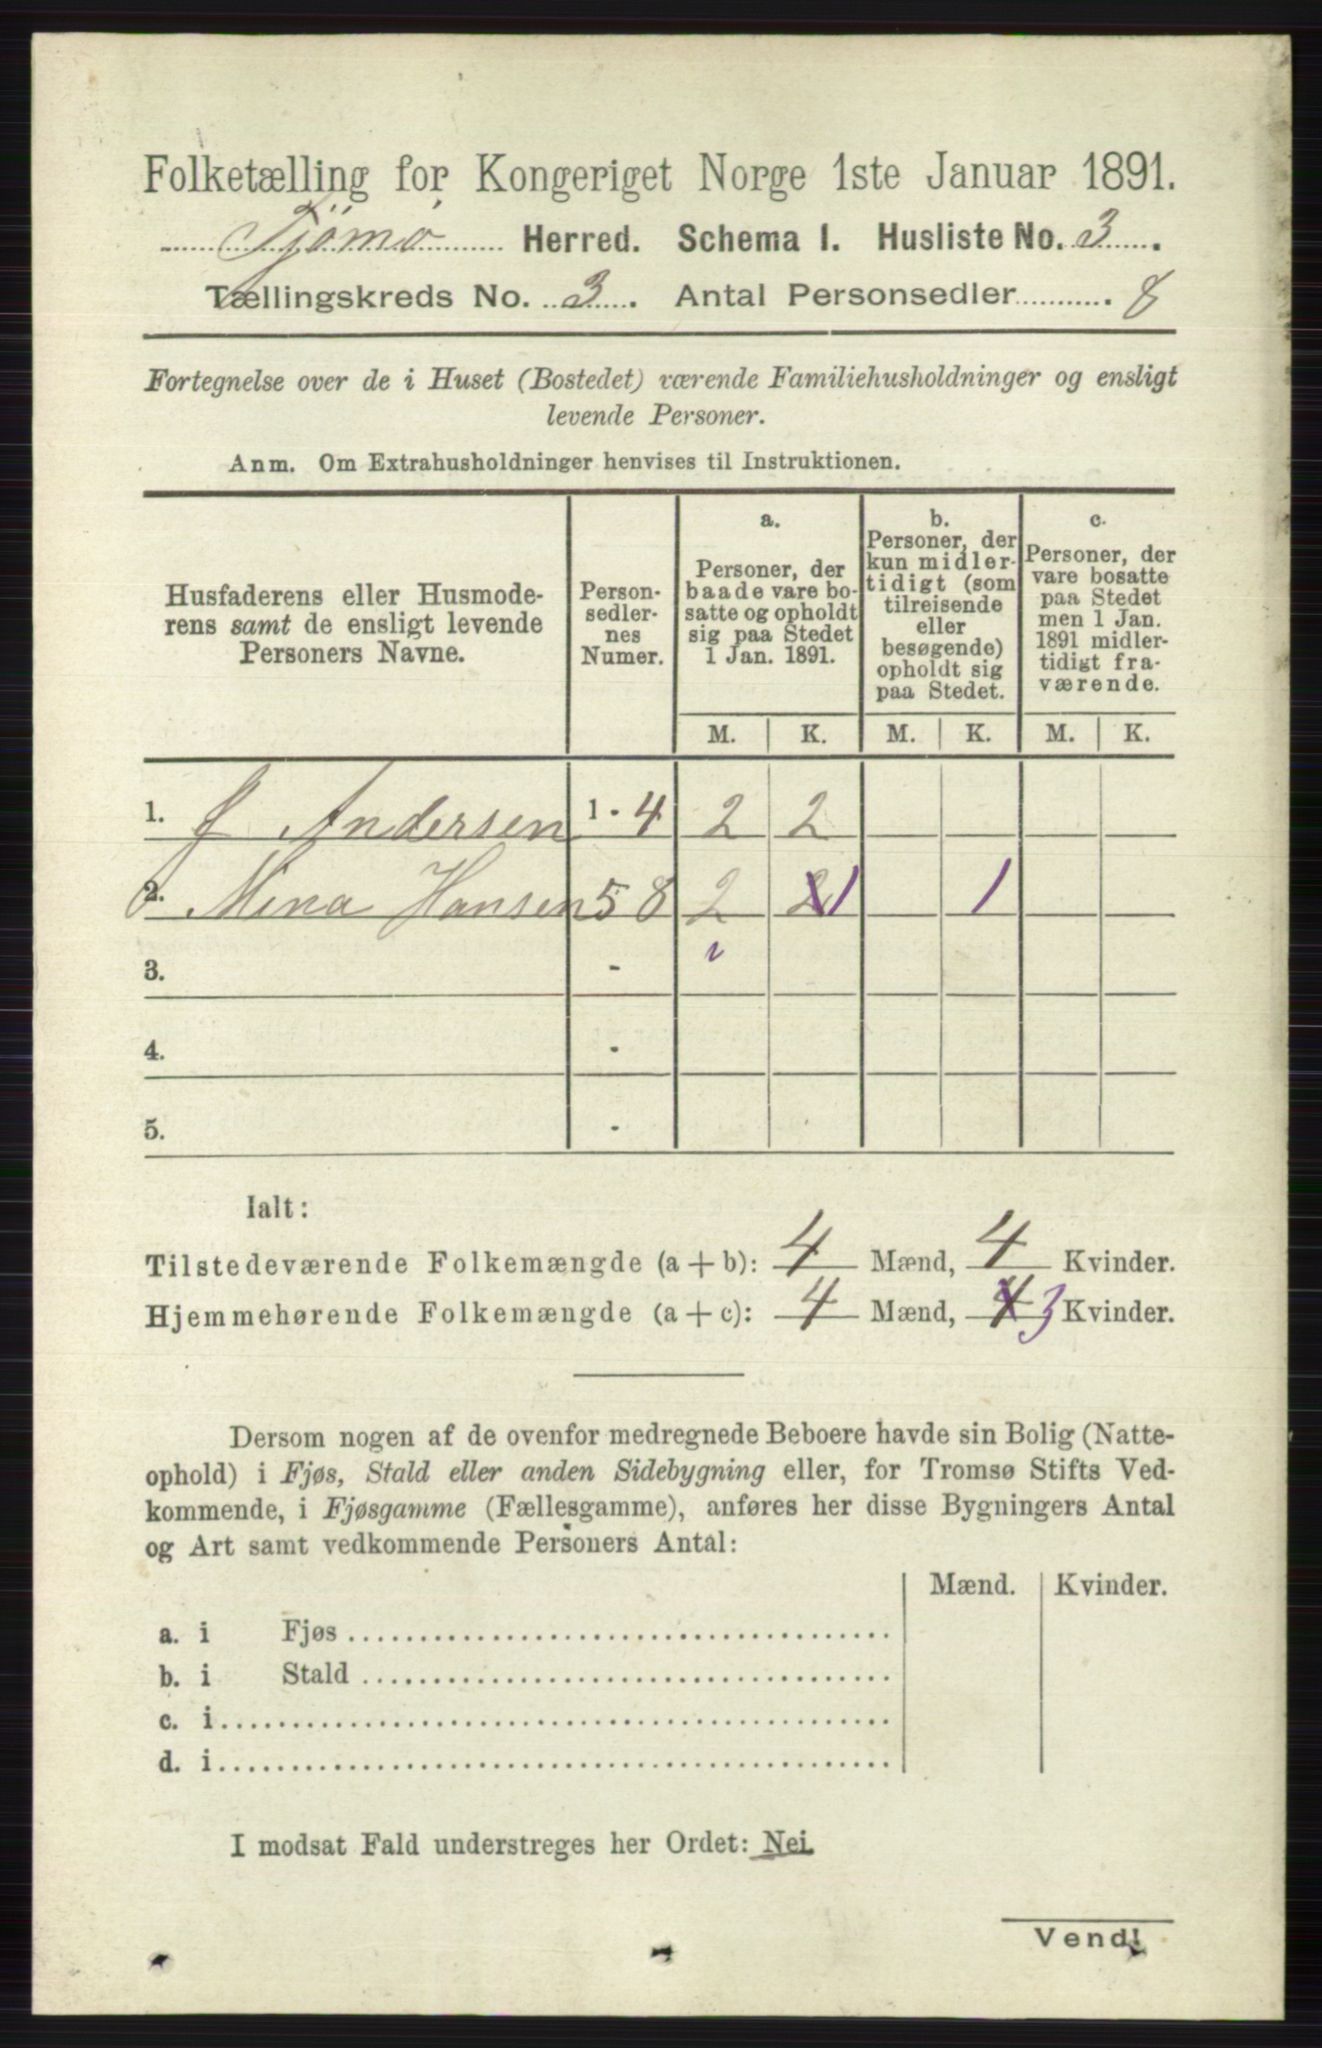 Folketælling for Kongeriget Norge 1ste Januar 1891.
Tjømø Herred. Schema I. Husliste No. 3.
Tællingskreds No. 3. Antal Personsedler 8
Fortegnelse over de i Huset (Bostedet) værende Familiehusholdninger og ensligt
levende Personer.
Anm. Om Extrahusholdninger henvises til Instruktionen.
Husfaderens eller Husmode-
rens samt de ensligt levende
Personers Navne.
Person-
sedler-
nes
Numer.
a.
Personer, der
baade vare bo-
satte og opholdt
sig paa Stedet
1 Jan. 1891.
b.
Personer, der
kun midler-
tidigt (som
tilreisende
eller
besøgende)
opholdt sig
paa Stedet.
c.
Personer, der
vare bosatte
paa Stedet
men 1 Jan.
1891 midler-
tidigt fra-
værende.
M. K. M. K. M. K.
1. J Andersen 1 - 4 2 2
2. Mina Hansen 5 8 2 2 1 1
3. -
4. -
5. -
Ialt:
Tilstedeværende Folkemængde (a + b): 4 Mænd, 4 Kvinder.
Hjemmehørende Folkemængde (a + c): 4 Mænd, 4 3 Kvinder.
Dersom nogen af de ovenfor medregnede Beboere havde sin Bolig (Natte-
ophold) i Fjøs, Stald eller anden Sidebygning eller, for Tromsø Stifts Ved-
kommende, i Fjøsgamme (Fællesgamme), anføres her disse Bygningers Antal
og Art samt vedkommende Personers Antal:
Mænd. Kvinder.
a. i Fjøs
b. i Stald
c. i
d. i
I modsat Fald understreges her Ordet: Nei.
Vend!